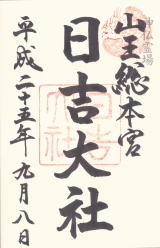 神仏霊場
山王総本宮
日吉大社
平成二十五年九月八日